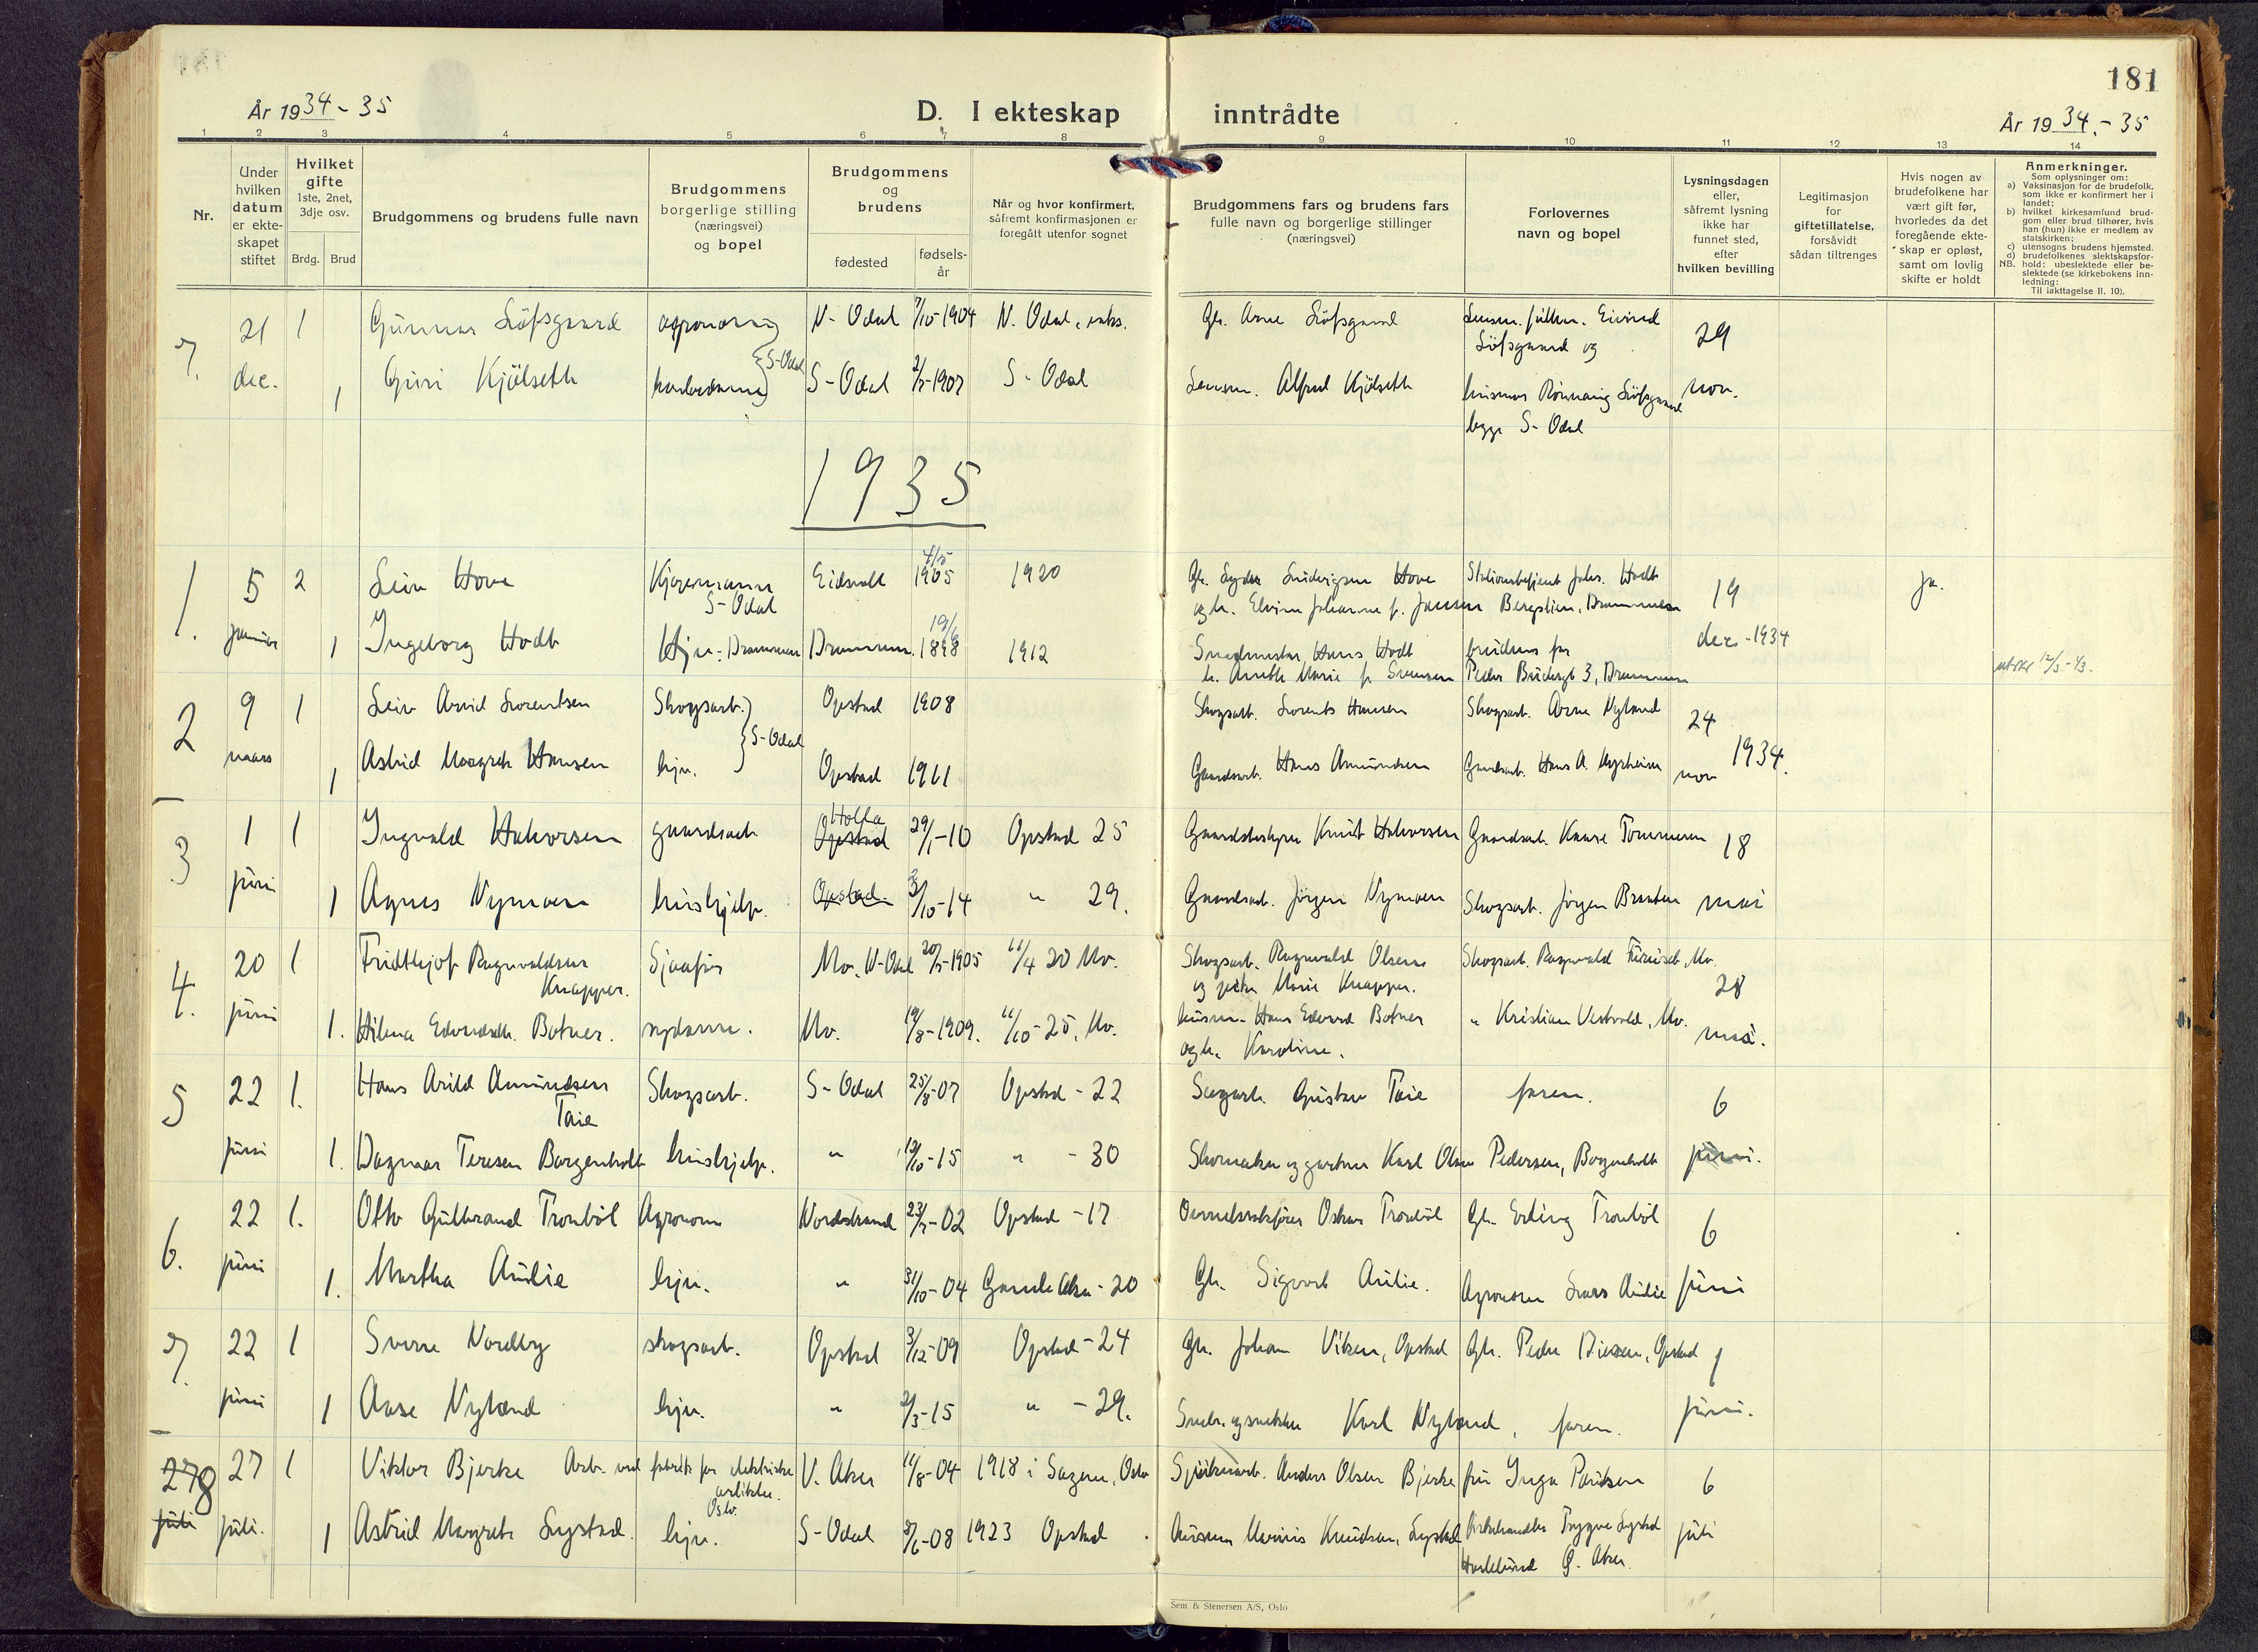 181
År 1934 - 35
D. I ekteskap inntrådte
År 1934. - 35
1 2 3 4 5 6 7 8 9 10 11 12 13 14
Nr.
Under hvilken datum er ekte-skapet stiftet
Hvilket gifte
1ste, 2net, 3dje osv.
Brdg. Brud
Brudgommens og brudens fulle navn
Brudgommens borgerlige stilling (næringsvei) og bopel
Brudgommens og brudens
fødested
fødsels-år
Når og hvor konfirmert, såfremt konfirmasjonen er foregått utenfor sognet
Brudgommens fars og brudens fars fulle navn og borgerlige stillinger (næringsvei)
Forlovernes navn og bopel
Lysningsdagen eller, såfremt lysning ikke har funnet sted, efter hvilken bevilling
Legitimasjon for giftetillatelse, forsåvidt sådan tiltrenges
Hvis nogen av brudefolkene har vært gift før, hvorledes da det foregående ekte-skap er opløst, samt om lovlig skifte er holdt
Anmerkninger.
Som oplysninger om:
a) Vaksinasjon for de brudefolk, som ikke er konfirmert her i landet;
b) hvilket kirkesamfund brud-gom eller brud tilhører, hvis han (hun) ikke er medlem av statskirken;
c) utensogns brudens hjemsted.
d) brudefolkenes slektskapsfor-hold: ubeslektede eller be-slektede (se kirkebokens inn-ledning:
NB.
Til iakttagelse II. 10).
7. 21 1 Gunnar Löfsgaard agronom N- Odal 7/10-1904 N. Odal Gb. Arne Löfsgaard Eivind Löfsgaard og 29
dec. 1 Guri Kjölseth S-Odal S-Odal 2/7-1907 S-Odal Lensm. Alfred Kjölseth Rönnaug Löfsgaard nov.
begge S-Odal
1935
1. 5 2 Leiv Hove Kjøpmann S-Odal Eidsvoll 4/5 1905 1920 Stasjonsbetjent Johs. Hodt Bergstien, Drammen 19 ja.
januar 1 Ingeborg Hodt Hju. Drammen Drammen 19/6 1898 1912 Smedmester Hans Hodt brudens far dec-1934
Peder Buchsgt 3, Drammen
2 9 1 Leiv Arvid Lorentsen Skogsarb. S-Odal Opstad 1908 Skogsarb. Lorents Hansen Skogsarb. Arne Nyland 24
mars 1 Astrid Margreth Hansen hju. Opstad 1911 Gaardsarb. Hans Amundsen Gaardsarb. Hans A. Myrheim nov 1934.
3 1 1 Ingvald Halvorsen gaardsarb Holla Opstad 29/1-10 Opstad 25 Gaardsbestyrer Knut Halvorsen Gaardsarb. Kaare Tommeren 18
juni 1 Agnes Nymoen hushjelp. Opstad 3/10-14 " 29. Gaardsarb. Jörgen Nymoen Skogsarb. Jörgen Braaten mai
4. 20 1 Fridthjof Ragnvaldsen Knapper. Sjaafør Mo, N-Odal 20/5-1905 11/4 20 Mo. Skogsarb. Ragnvald Olsen og Marie Knapper. Skogsarb. Ragnvald Furuset, Mo. 28
juni 1. Hilma Edvardsdt. Botner. sydame. Mo. 19/8-1909. 11/10-25, Mo. Hans Edvard Botner og h. Karoline. " Kristian Vestvold, Mo. mai.
5 22 1. Hans Arild Amundsen Taie Skogsarb. S-Odal 25/8-07 Opstad - 22 Sagarb. Gustav Taie faren. 6
juni 1. Dagmar Teresen Borgenholt hushjelp. " 19/10-15 " - 30 Skomaker og gartner Karl Olsen Pedersen, Borgenholt juni.
6. 22 1. Otto Gulbrand Tronböl Agronom Nordstrand 23/7-02 Opstad - 17 Oskar Tronböl Gb. Erling Tronböl 6
juni 1. Martha Aulie hju. " 31/10-04 Gamle Aker - 20 Gb. Sigvart Aulie. Agronom Lars Aulie juni
7. 22 1 Sverre Nordby skogsarb. Opstad 3/12-09 Opstad - 24 Gb. Johan Viken, Opstad Gb. Peder Diesen, Opstad 1
juni 1 Aase Nyland hju. " 2/3-15 " - 29. Smed og snekker Karl Nyland, faren. juni.
278 27 1 Viktor Bjerke Arb. ved fabrik for elektriske artikler. Oslo. V. Aker 14/8-04 1918 i Sagene, Oslo Anders Olsen Bjerke fru Inga Paulsen 6
juli juli. 1 Astrid Margrete Lystad. hju. S-Odal 8/6-08 1923 Opstad Marius Knudsen, Lystad Trygve Lystad juli
Haslelund Ö. Aker.
Sem & Stenersen A/S, Oslo